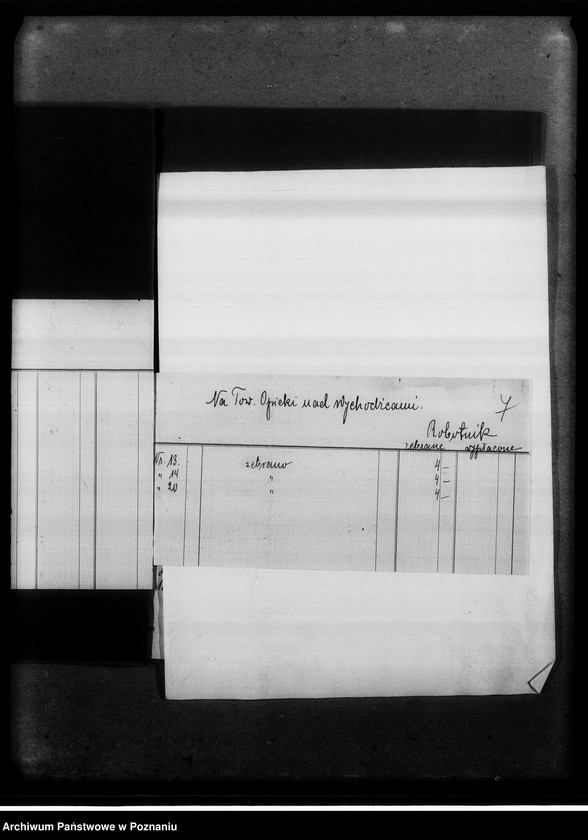 Na Tow. Opieki nad Wychodźcami. 7
Robotnik
zebrane wypłacone
Nr. 13. zebrano 4 —
" 14 " 4 —
" 20 " 4 —
Archiwum Państwowe w Poznaniu